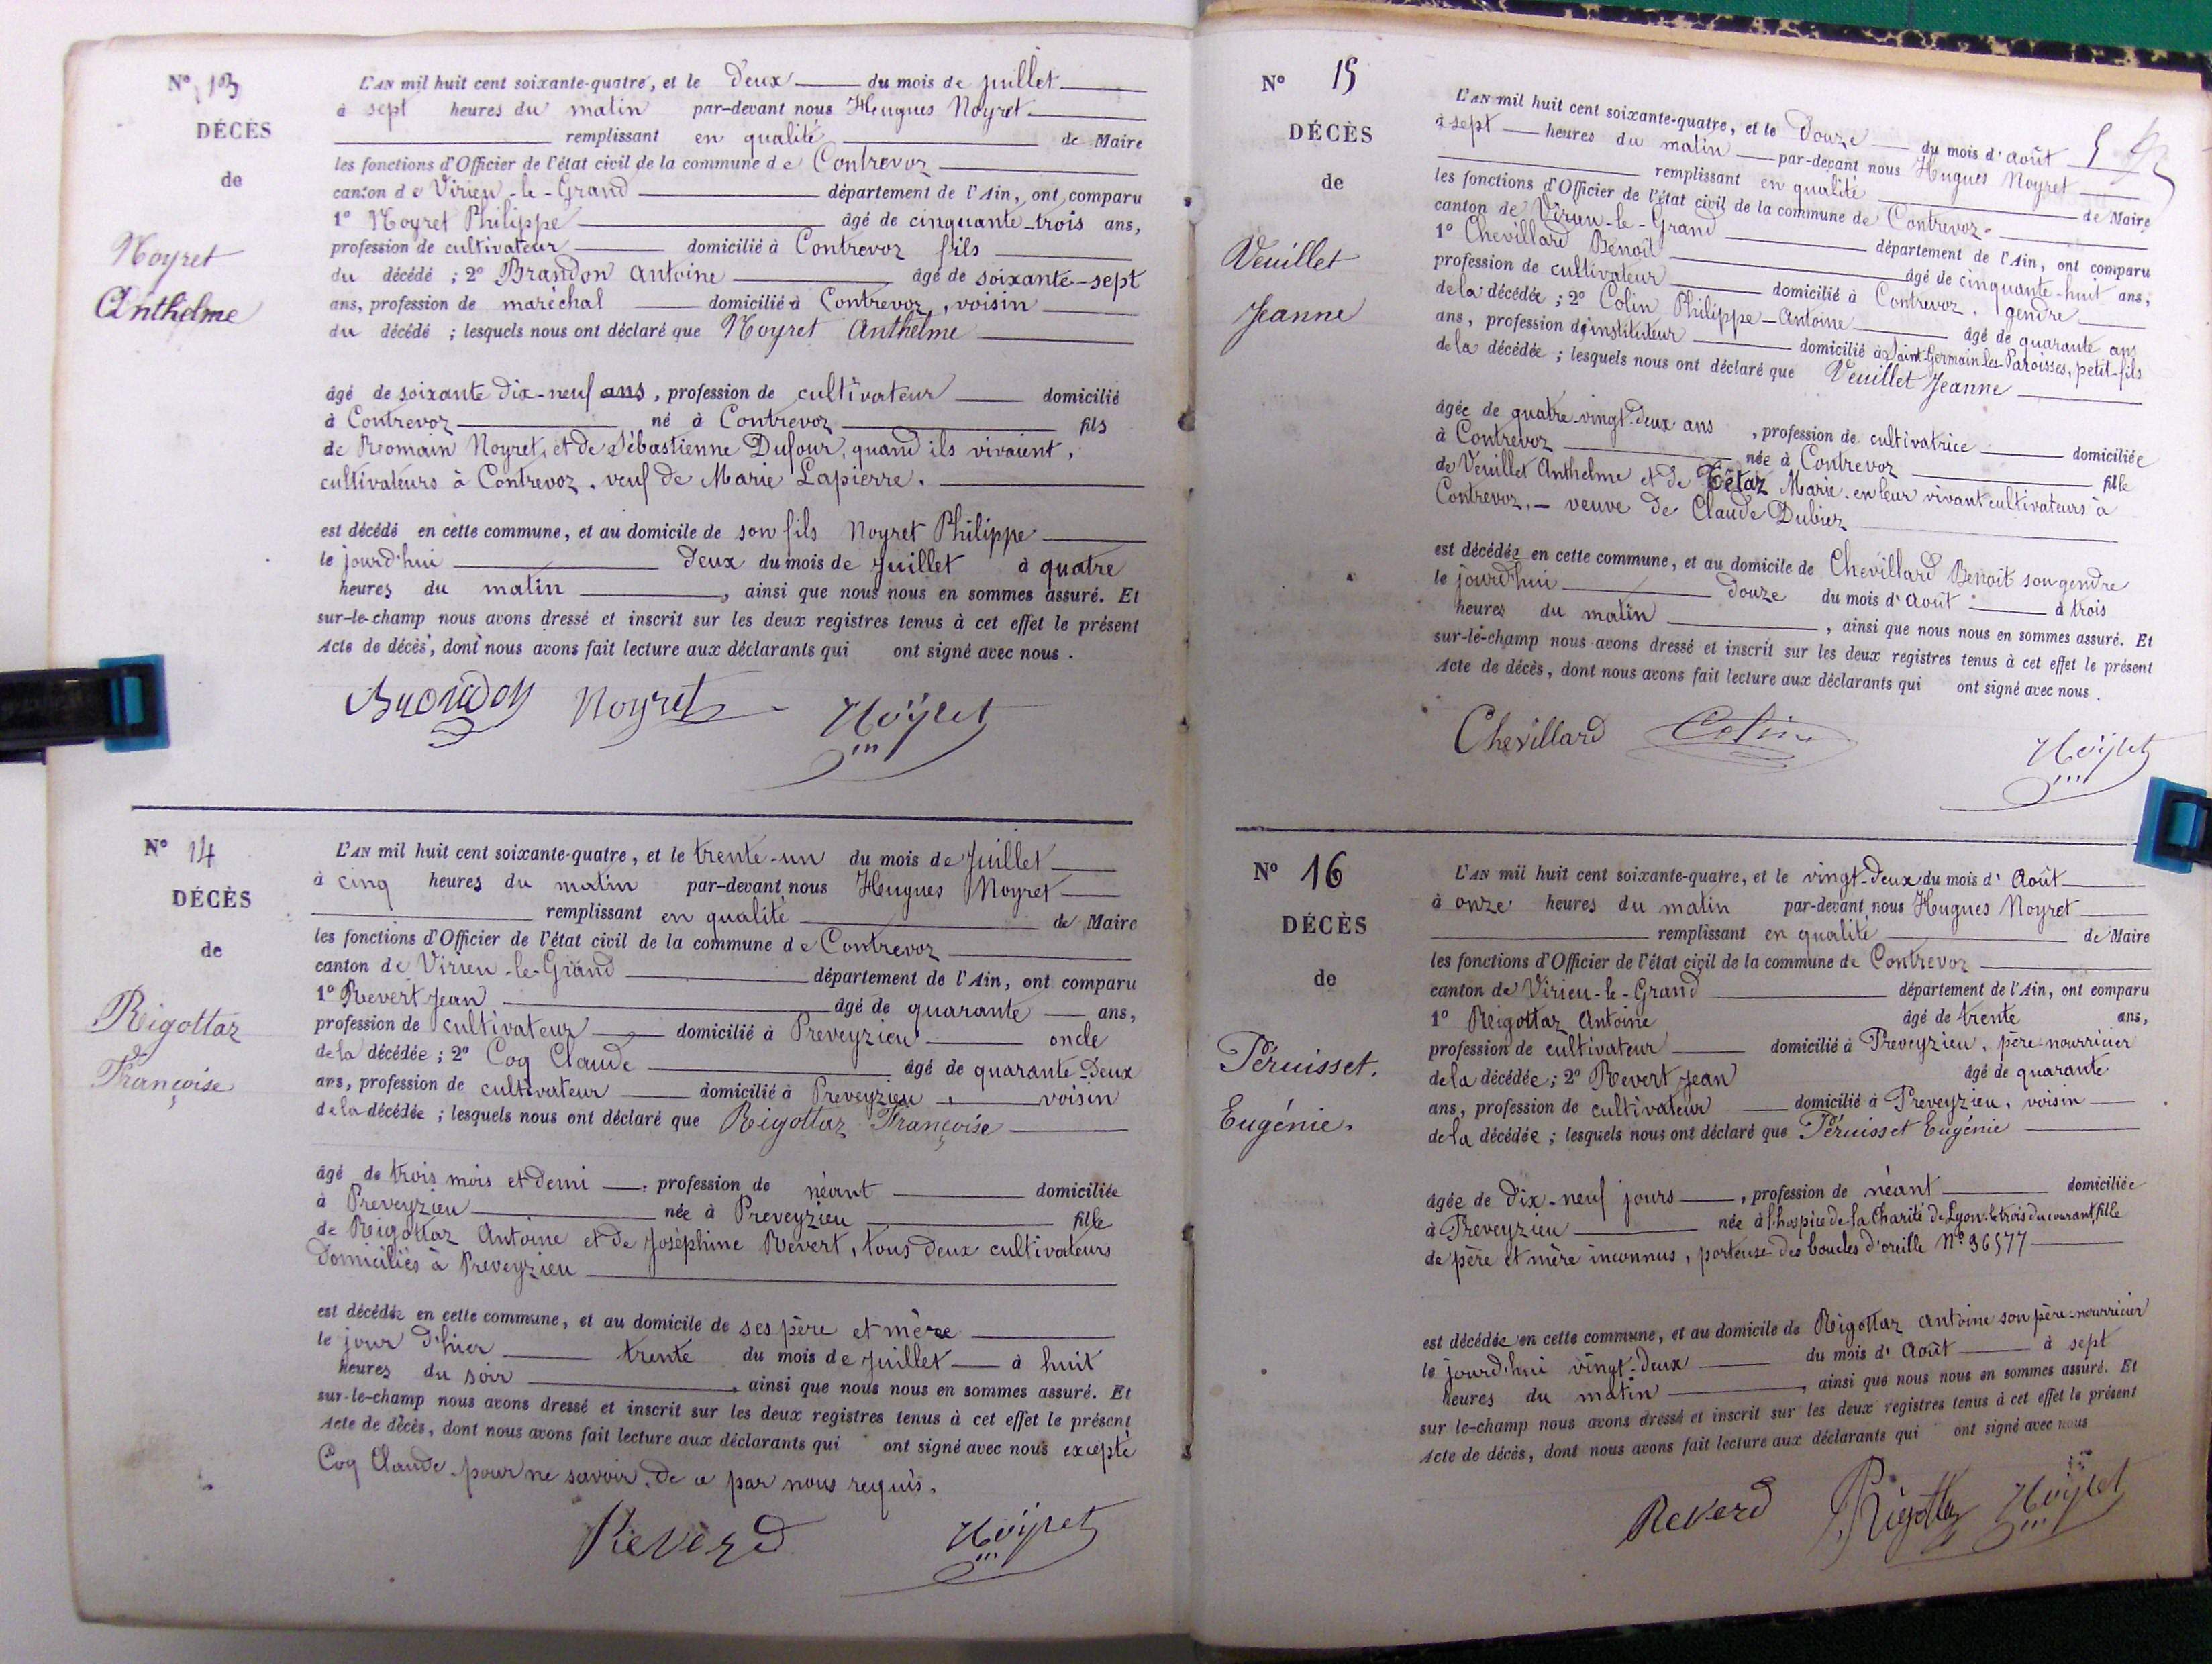 N° 13
DÉCÈS
de
Noyret
Anthelme
L'AN mil huit cent soixante-quatre, et le deux du mois de juillet
à sept heures du matin par-devant nous Hugues Noyret
remplissant en qualité de Maire
les fonctions d'Officier de l'état civil de la commune de Contrevoz
canton de Virieu-le-Grand département de l'Ain, ont comparu
1° Noyret Philippe âgé de cinquante-trois ans,
profession de cultivateur domicilié à Contrevoz fils
du décédé ; 2° Brandon Antoine âgé de soixante-sept
ans, profession de maréchal domicilié à Contrevoz, voisin
du décédé ; lesquels nous ont déclaré que Noyret Anthelme
âgé de soixante dix-neuf ans, profession de cultivateur domicilié
à Contrevoz né à Contrevoz fils
de Romain Noyret, et de Sébastienne Dufour, quand ils vivaient,
cultivateurs à Contrevoz. veuf de Marie Lapierre.
est décédé en cette commune, et au domicile de son fils Noyret Philippe
le jourd'hui deux du mois de juillet à quatre
heures du matin, ainsi que nous nous en sommes assuré. Et
sur-le-champ nous avons dressé et inscrit sur les deux registres tenus à cet effet le présent
Acte de décès, dont nous avons fait lecture aux déclarants qui ont signé avec nous.
Brondon Noyret Noÿret
N° 14
DÉCÈS
de
Rigottaz
Françoise
L'AN mil huit cent soixante-quatre, et le trente-un du mois de Juillet
à cinq heures du matin par-devant nous Hugues Noyret
remplissant en qualité de Maire
les fonctions d'Officier de l'état civil de la commune de Contrevoz
canton de Virieu-le-Grand département de l'Ain, ont comparu
1° Revert Jean âgé de quarante ans,
profession de cultivateur domicilié à Preveyzieu oncle
de la décédée ; 2° Coq Claude âgé de quarante-deux
ans, profession de cultivateur domicilié à Preveyzieu, voisin
de la décédée ; lesquels nous ont déclaré que Rigottaz Françoise
âgé de trois mois et demi, profession de néant domiciliée
à Preveyzieu née à Preveyzieu fille
de Rigottaz Antoine et de Joséphine Revert, tous deux cultivateurs
domiciliés à Preveyzieu
est décédée en cette commune, et au domicile de ses père et mère
le jour d'hier trente du mois de Juillet à huit
heures du soir, ainsi que nous nous en sommes assuré. Et
sur-le-champ nous avons dressé et inscrit sur les deux registres tenus à cet effet le présent
Acte de décès, dont nous avons fait lecture aux déclarants qui ont signé avec nous excepté
Coq Claude pour ne savoir, de ce par nous requis.
Reverd Noÿret
N° 15
DÉCÈS
de
Veuillet
Jeanne
L'AN mil huit cent soixante-quatre, et le douze du mois d'août
à sept heures du matin par-devant nous Hugues Noyret
remplissant en qualité de Maire
les fonctions d'Officier de l'état civil de la commune de Contrevoz
canton de Virieu-le-Grand département de l'Ain, ont comparu
1° Chevillard Benoît âgé de cinquante-huit ans,
profession de cultivateur domicilié à Contrevoz, gendre
de la décédée ; 2° Colin Philippe-Antoine âgé de quarante ans
ans, profession d'instituteur domicilié à Saint-Germain-les-Paroisses, petit-fils
de la décédée ; lesquels nous ont déclaré que Veuillet Jeanne
âgée de quatre-vingt-deux ans, profession de cultivatrice domiciliée
à Contrevoz née à Contrevoz fille
de Veuillet Anthelme et de Tétaz Marie en leur vivant cultivateurs à
Contrevoz, – veuve de Claude Dubiez
est décédée en cette commune, et au domicile de Chevillard Benoît son gendre
le jourd'hui douze du mois d'août à trois
heures du matin, ainsi que nous nous en sommes assuré. Et
sur-le-champ nous avons dressé et inscrit sur les deux registres tenus à cet effet le présent
Acte de décès, dont nous avons fait lecture aux déclarants qui ont signé avec nous.
Chevillard Colin Noÿret
N° 16
DÉCÈS
de
Péruisset.
Eugénie.
L'AN mil huit cent soixante-quatre, et le vingt-deux du mois d'Août
à onze heures du matin par-devant nous Hugues Noyret
remplissant en qualité de Maire
les fonctions d'Officier de l'état civil de la commune de Contrevoz
canton de Virieu-le-Grand département de l'Ain, ont comparu
1° Rigottaz Antoine âgé de trente ans,
profession de cultivateur domicilié à Preveyzieu, père-nourricier
de la décédée ; 2° Revert Jean âgé de quarante
ans, profession de cultivateur domicilié à Preveyzieu, voisin
de la décédée ; lesquels nous ont déclaré que Péruisset Eugénie
âgée de dix-neuf jours, profession de néant domiciliée
à Preveyzieu née à l'hospice de la Charité de Lyon le trois du courant, fille
de père et mère inconnus, porteuse des boucles d'oreille N° 36577
est décédée en cette commune, et au domicile de Rigottaz Antoine son père-nourricier
le jourd'hui vingt-deux du mois d'Août à sept
heures du matin, ainsi que nous nous en sommes assuré. Et
sur le-champ nous avons dressé et inscrit sur les deux registres tenus à cet effet le présent
Acte de décès, dont nous avons fait lecture aux déclarants qui ont signé avec nous
Reverd Rigottaz Noÿret